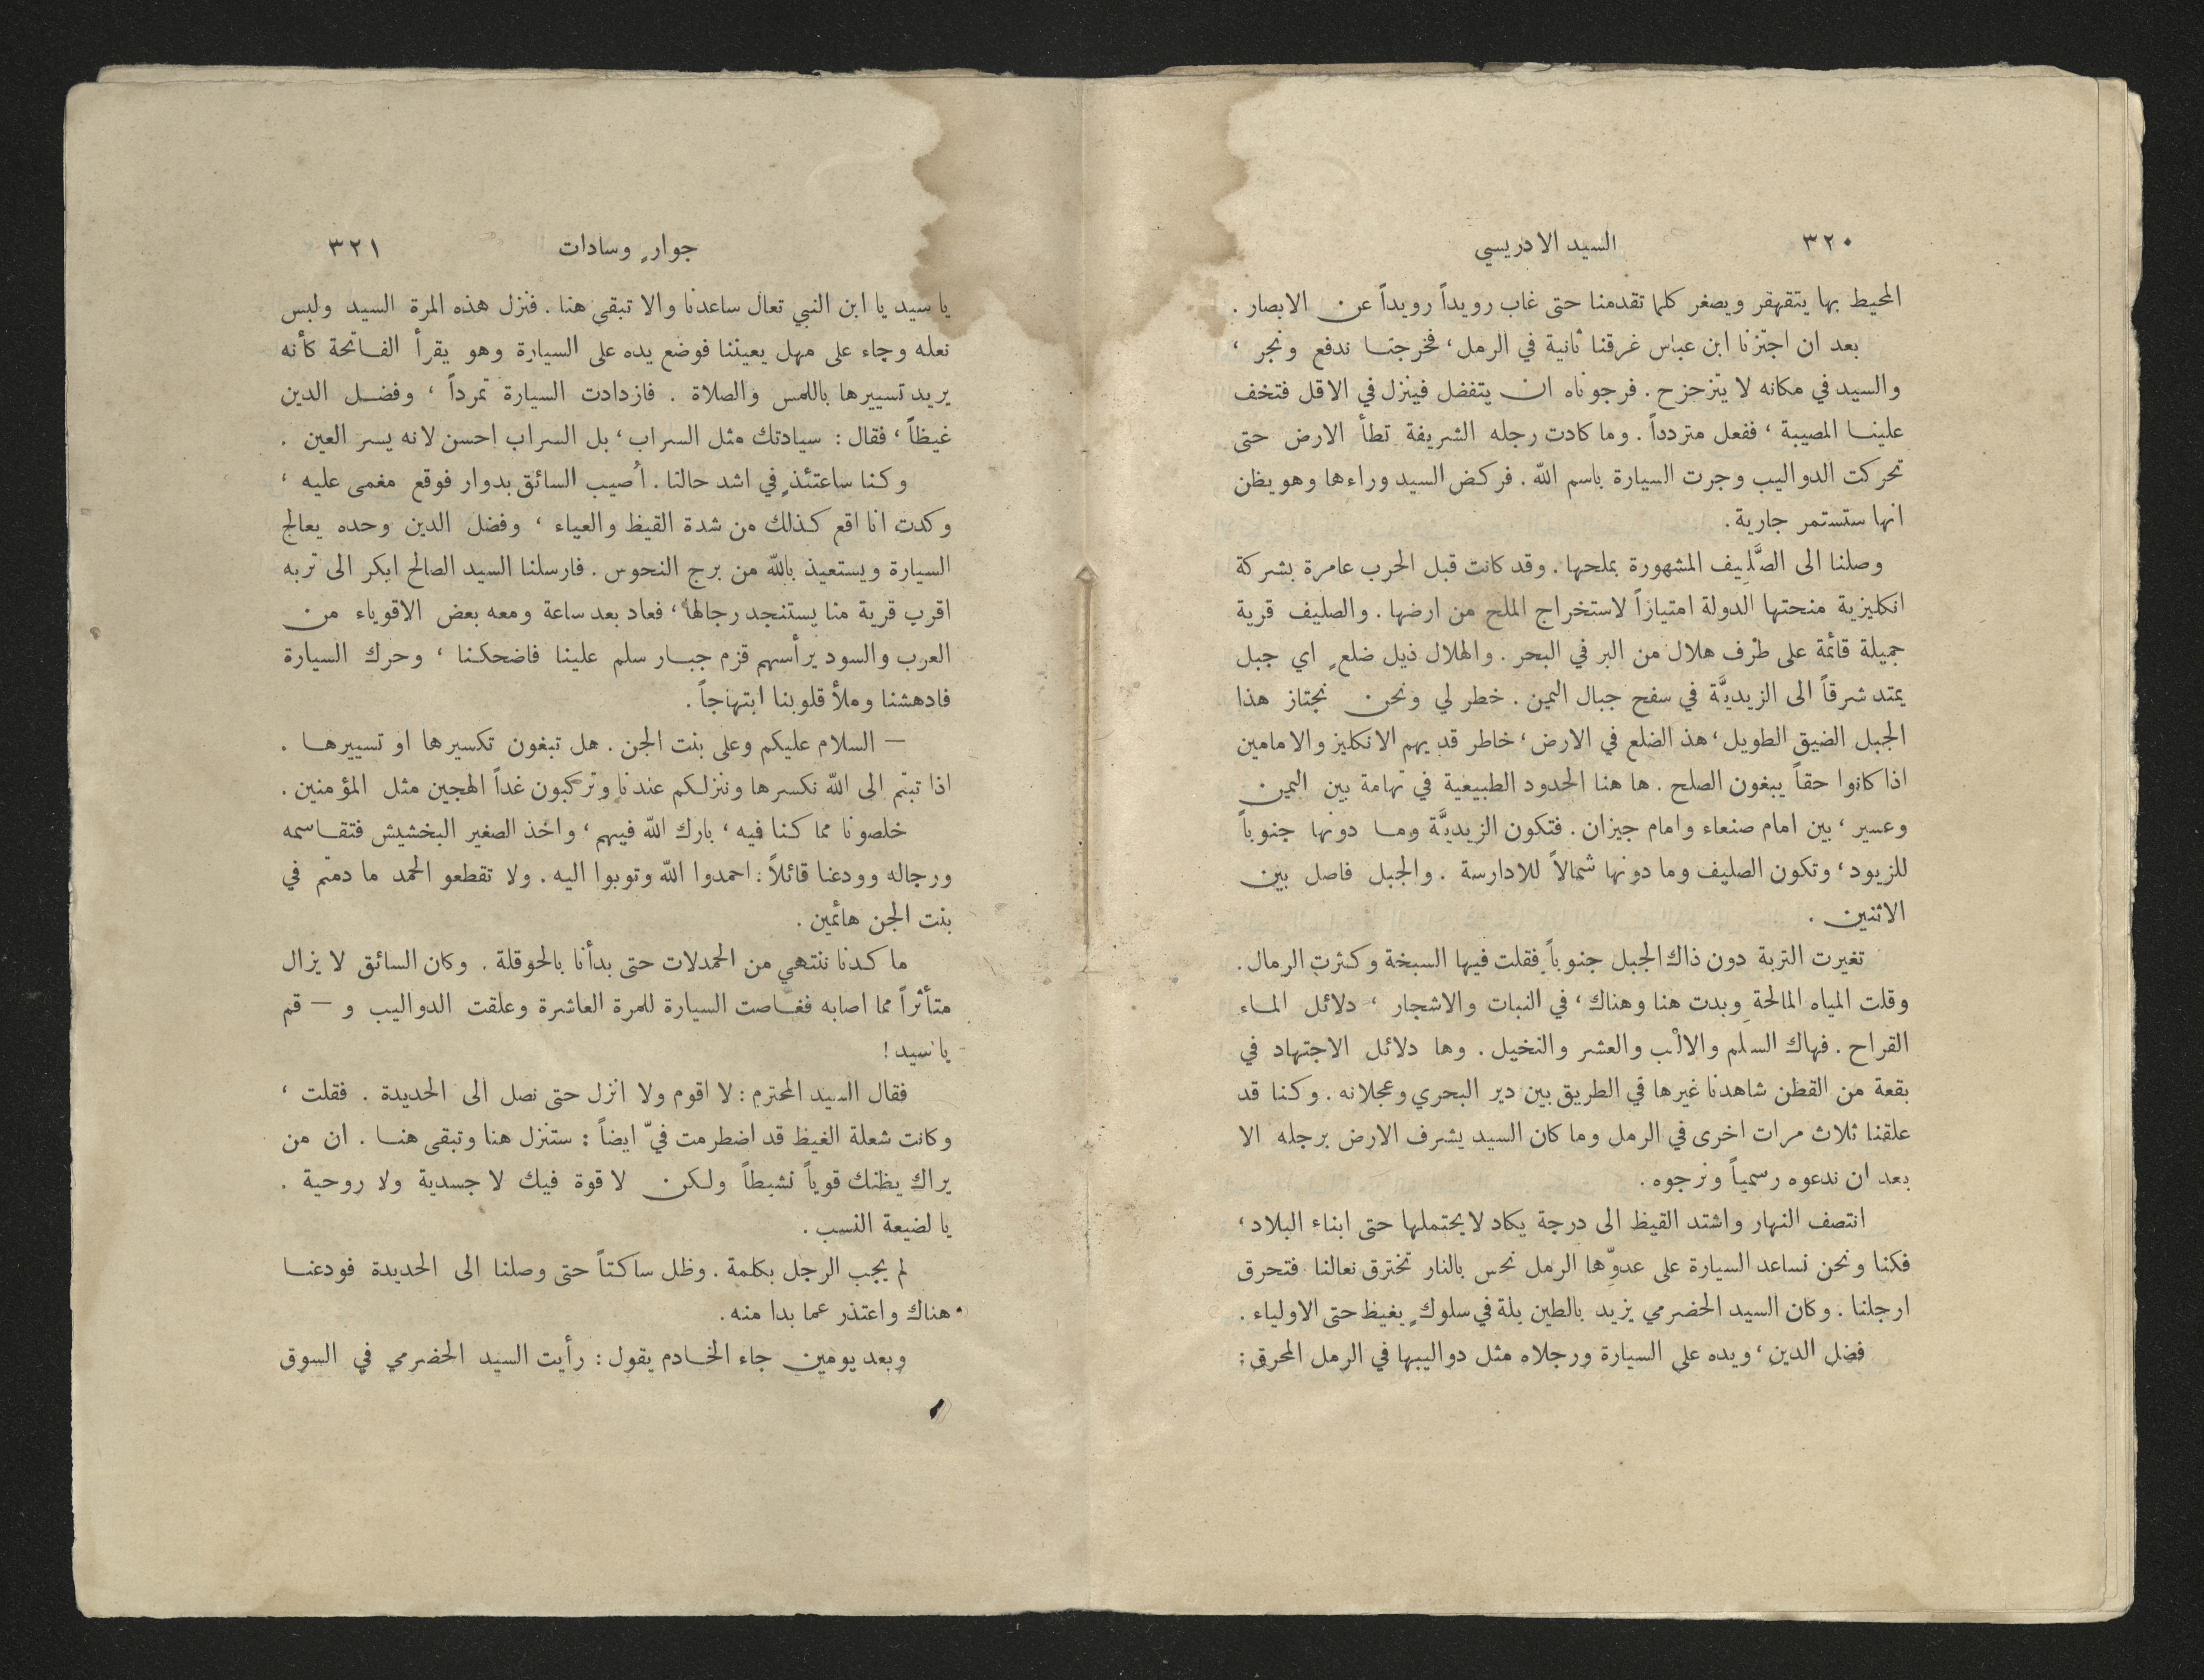 ٣٢٠
السيد الادريسي
المحيط بها يتقهقر ويصغر كلما تقدمنا حتى غاب رويداً رويداً عن الابصار .
بعد ان اجتزنا ابن عباس غرقنا ثانية في الرمل ، فخرجنا ندفع ونجر ،
والسيد في مكانه لا يتزحزح . فرجوناه ان يتفضل فينزل في الاقل فتخف
علينا المصيبة ، ففعل متردداً . وما كادت رجله الشريفة تطأ الارض حتى
تحركت الدواليب وجرت السيارة باسم الله . فركض السيد وراءها وهو يظن
انها ستستمر جارية .
وصلنا الى الصَّلِيف المشهورة بملحها . وقد كانت قبل الحرب عامرة بشركة
انكليزية منحتها الدولة امتيازاً لاستخراج الملح من ارضها . والصليف قرية
جميلة قائمة على طرف هلال من البر في البحر . والهلال ذيل ضلعٍ اي جبل
يمتد شرقاً الى الزيديَّة في سفح جبال اليمن . خطر لي ونحن نجتاز هذا
الجبل الضيق الطويل ، هذ الضلع في الارض ، خاطر قد يهم الانكليز والامامين
اذا كانوا حقاً يبغون الصلح . ها هنا الحدود الطبيعية في تهامة بين اليمن
وعسير ، بين امام صنعاء وامام جيزان . فتكون الزيديَّة وما دونها جنوباً
للزيود ، وتكون الصليف وما دونها شمالاً للادارسة . والجبل فاصل بين
الاثنين .
تغيرت التربة دون ذاك الجبل جنوباً فقلت فيها السبخة وكثرت الرمال .
وقلت المياه المالحة وبدت هنا وهناك ، في النبات والاشجار ، دلائل الماء
القراح . فهاك السلَم والالْب والعشر والنخيل . وها دلائل الاجتهاد في
بقعة من القطن شاهدنا غيرها في الطريق بين دير البحري وعجلانه . وكنا قد
علقنا ثلاث مرات اخرى في الرمل وما كان السيد يشرف الارض برجله الا
بعد ان ندعوه رسمياً ونرجوه .
انتصف النهار واشتد القيظ الى درجة يكاد لا يحتملها حتى ابناء البلاد ،
فكنا ونحن نساعد السيارة على عدوِّها الرمل نحس بالنار تخترق نعالنا فتحرق
ارجلنا . وكان السيد الحضرمي يزيد بالطين بلة في سلوكٍ يغيظ حتى الاولياء .
فضل الدين ، ويده على السيارة ورجلاه مثل دواليبها في الرمل المحرق :
جوارٍ وسادات
٣٢١
يا سيد يا ابن النبي تعال ساعدنا والا تبقى هنا . فنزل هذه المرة السيد ولبس
نعله وجاء على مهل يعيننا فوضع يده على السيارة وهو يقرأ الفاتحة كأنه
يريد تسييرها باللمس والصلاة . فازدادت السيارة تمرداً ، وفضل الدين
غيظاً ، فقال : سيادتك مثل السراب ، بل السراب احسن لانه يسر العين .
وكنا ساعتئذٍ في اشد حالنا . أُصيب السائق بدوار فوقع مغمى عليه ،
وكدت انا اقع كذلك من شدة القيظ والعياء ، وفضل الدين وحده يعالج
السيارة ويستعيذ بالله من برج النحوس . فارسلنا السيد الصالح ابكر الى تربه
اقرب قرية منا يستنجد رجالها ، فعاد بعد ساعة ومعه بعض الاقوياء من
العرب والسود يرأسهم قزم جبار سلم علينا فاضحكنا ، وحرك السيارة
فادهشنا وملأ قلوبنا ابتهاجاً .
— السلام عليكم وعلى بنت الجن . هل تبغون تكسيرها او تسييرها .
اذا تبتم الى الله نكسرها وننزلكم عندنا وتركبون غداً الهجين مثل المؤمنين .
خلصونا مما كنا فيه ، بارك الله فيهم ، واخذ الصغير البخشيش فتقاسمه
ورجاله وودعنا قائلاً : احمدوا الله وتوبوا اليه . ولا تقطعو الحمد ما دمتم في
بنت الجن هائمين .
ما كدنا ننتهي من الحمدلات حتى بدأنا بالحوقلة . وكان السائق لا يزال
متأثراً مما اصابه فغاصت السيارة للمرة العاشرة وعلقت الدواليب و — قم
يا سيد !
فقال السيد المحترم : لا اقوم ولا انزل حتى نصل الى الحديدة . فقلت ،
وكانت شعلة الغيظ قد اضطرمت فيّ ايضاً : ستنزل هنا وتبقى هنا . ان من
يراك يظنك قوياً نشيطاً ولكن لا قوة فيك لا جسدية ولا روحية .
يا لضيعة النسب .
لم يجب الرجل بكلمة . وظل ساكتاً حتى وصلنا الى الحديدة فودعنا
هناك واعتذر عما بدا منه .
وبعد يومين جاء الخادم يقول : رأيت السيد الحضرمي في السوق